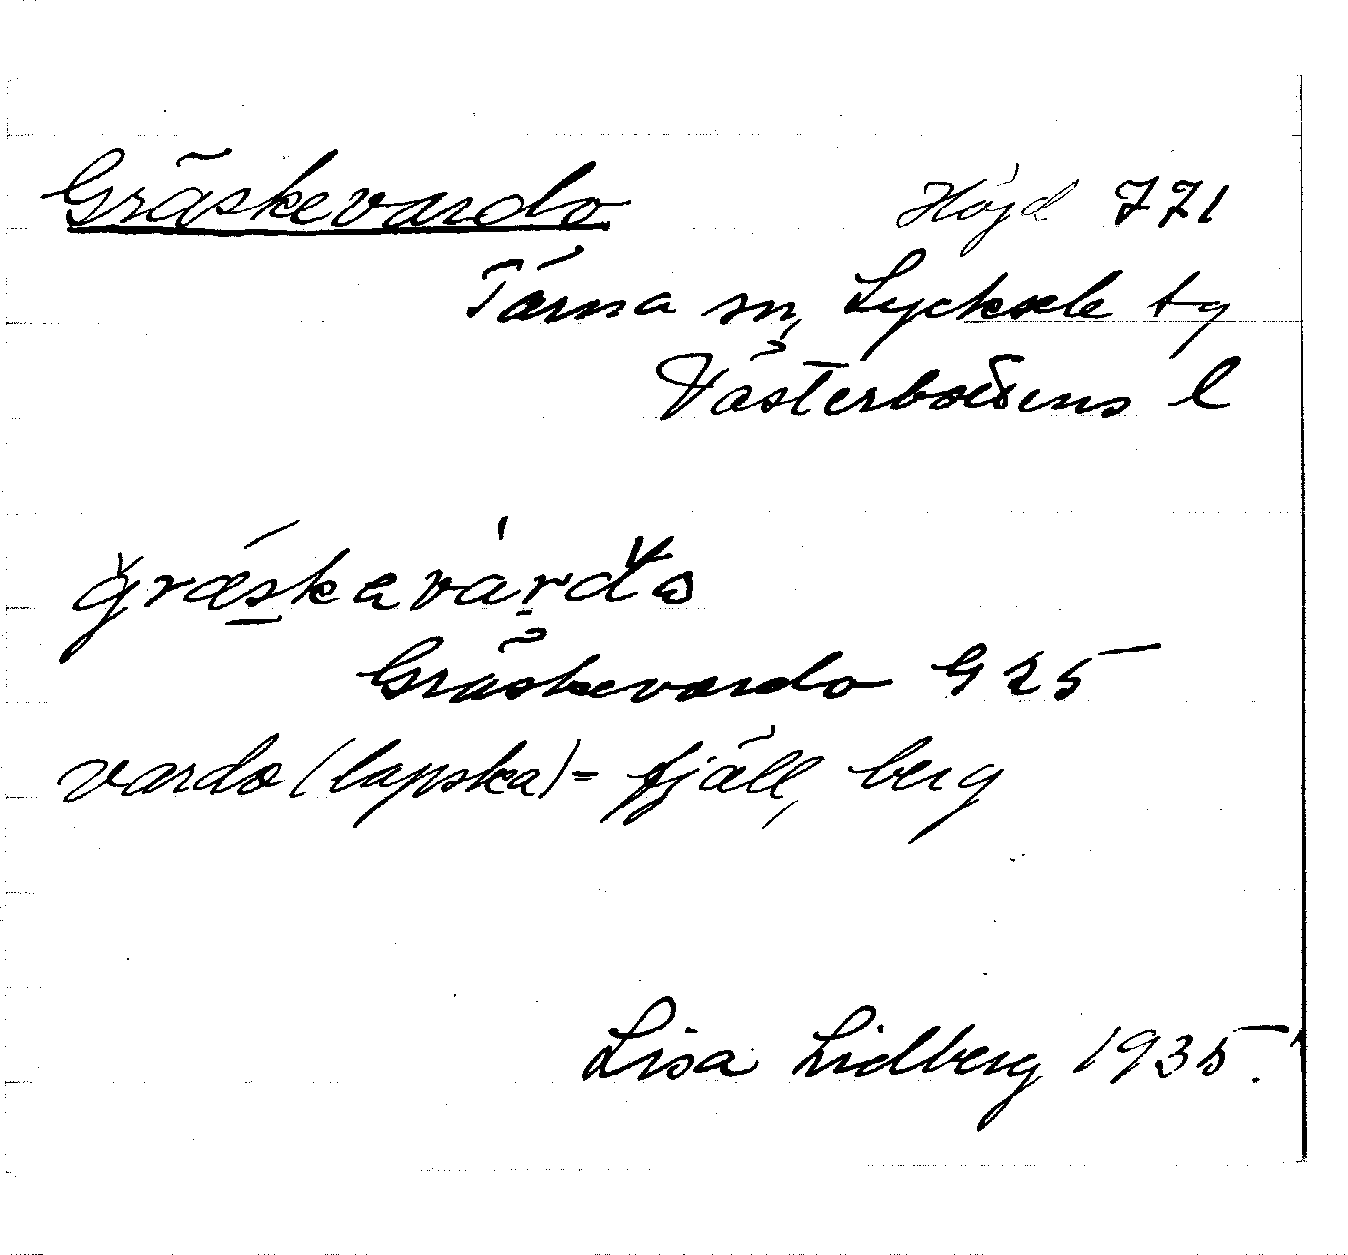 Gräskevardo Höjd 771
Tärna sn, Lycksele tg
Västerbottens l
græskavárdo
Gräskevardo G 25
vardo (lapska) = fjäll, berg
Lisa Lidberg 1935.